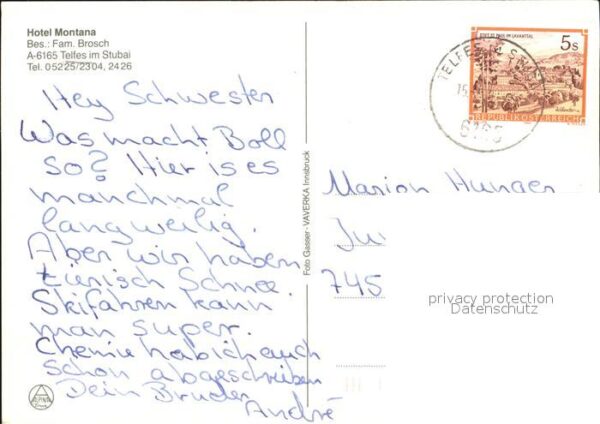 Hotel Montana
Bes.: Fam. Brosch
A-6165 Telfes im Stubai
Tel. 05225/2304, 2426
Hey Schwester
Was macht Boll
so? Hier is es
manchmal
langweilig.
Aber wir haben
tierisch Schnee.
Skifahren kann
man super.
Chemie hab ich auch
schon abgeschrieben
Dein Bruder
André
Foto Gasser · VAVERKA Innsbruck
5s
REPUBLIK ÖSTERREICH
6165
Marion Hunger
Ju
745
privacy protection
Datenschutz